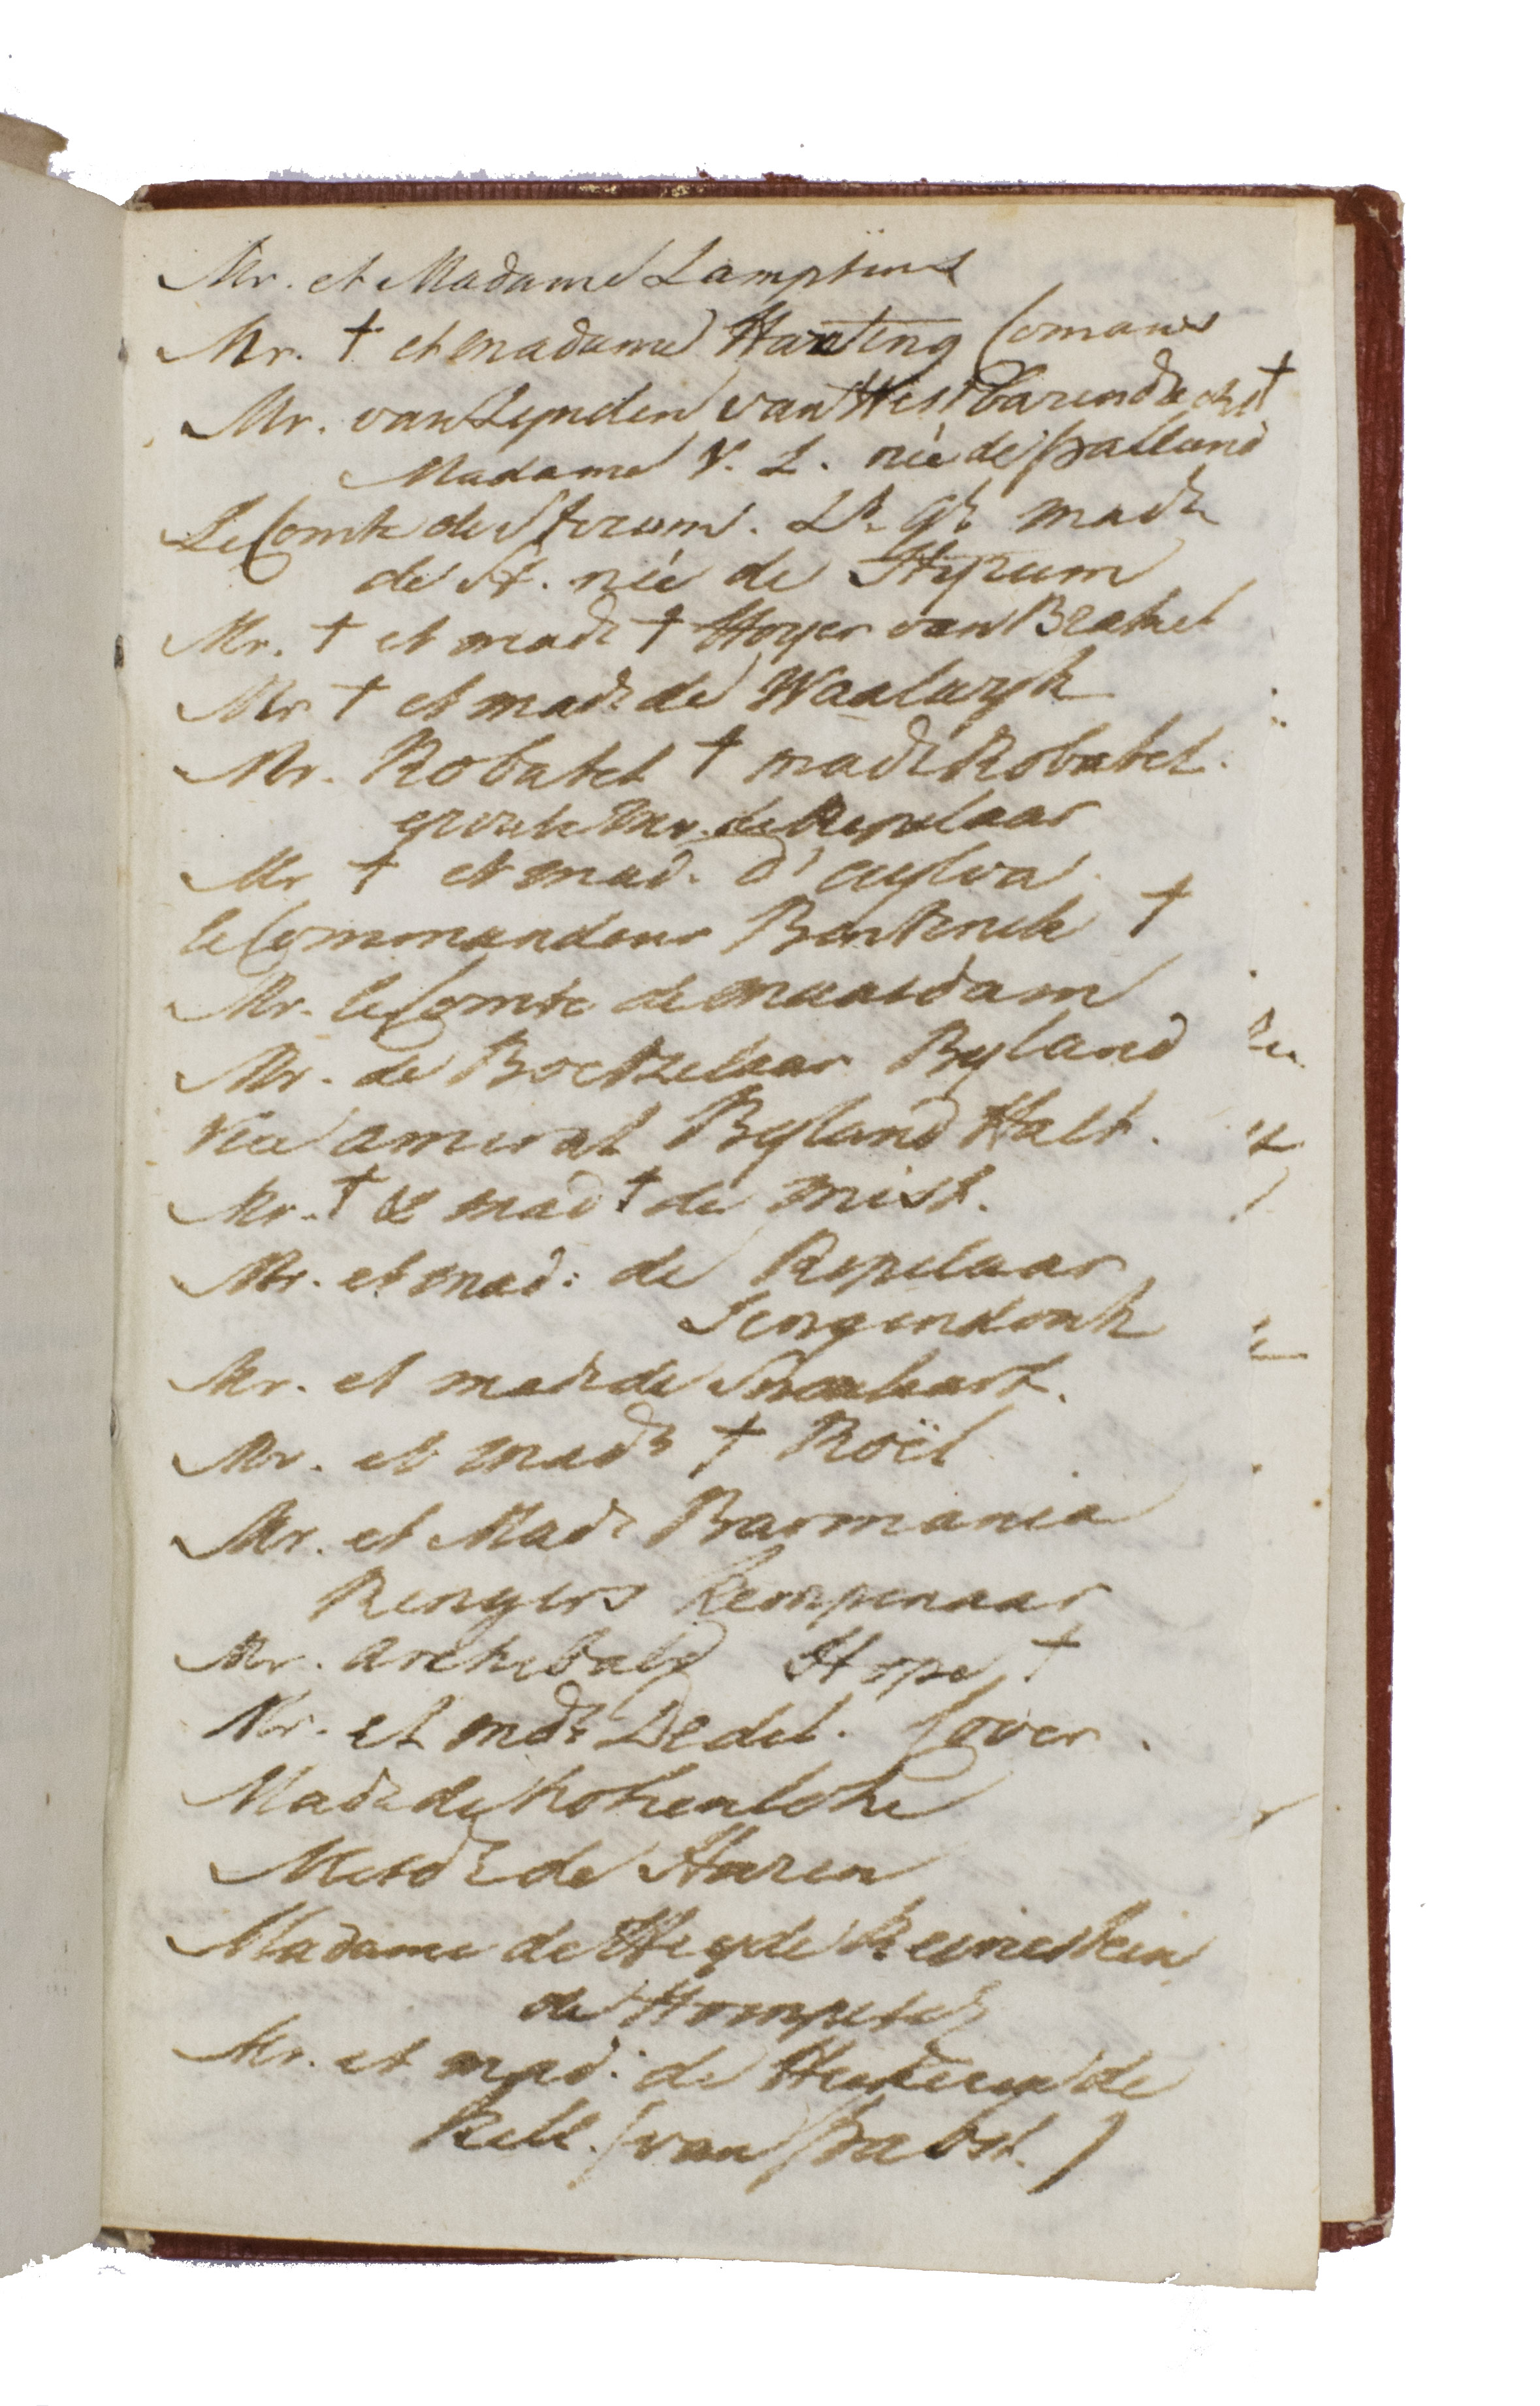 Mr. et Madame Lampsins
Mr. † et madame Hanting Comans
Mr. van Lynden van West barendrecht †
Madame V. L. née de palland
Le Comte de Stirum. Lt. Gl. made
de St. née de Styrum
Mr. † et made † Hoyer van Brakel
Mr † et made de Waalwyk
Mr. Robatel † made Robatel.
epouse Mr. de Repelaar
Mr † et mad. d'aylva
le Commandeur Bentinck †
Mr. le Comte de maasdam
Mr. de Boetzelaar Byland
Vice amiral Byland Halt.
Mr. † & mad † de mist.
Mr. et mad: de Repelaar
Jungendonk
Mr. et made de Snoukart.
Mr. et made † Roëll
Mr. et Made Burmania
Rengers Kempenaar
Mr. archibald Hope †
Mr. et mde Dedel.
Made de hohenlohe
Mesde de Haren
Madame de Heyde Reinestein
de Hompesch
Mr. et mad: de Heckeren de
Kell. (van pabst.)